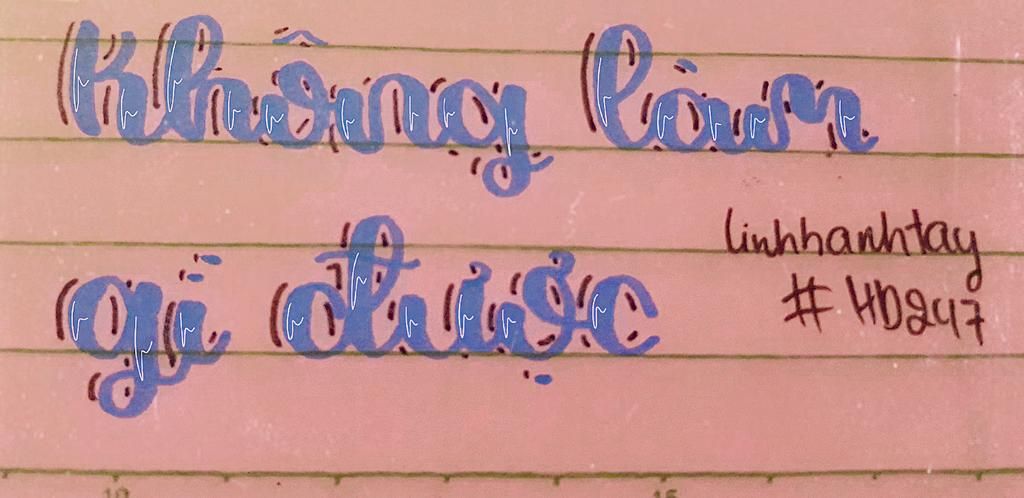 Không làm
gì được
linhhanhtay
#HD247